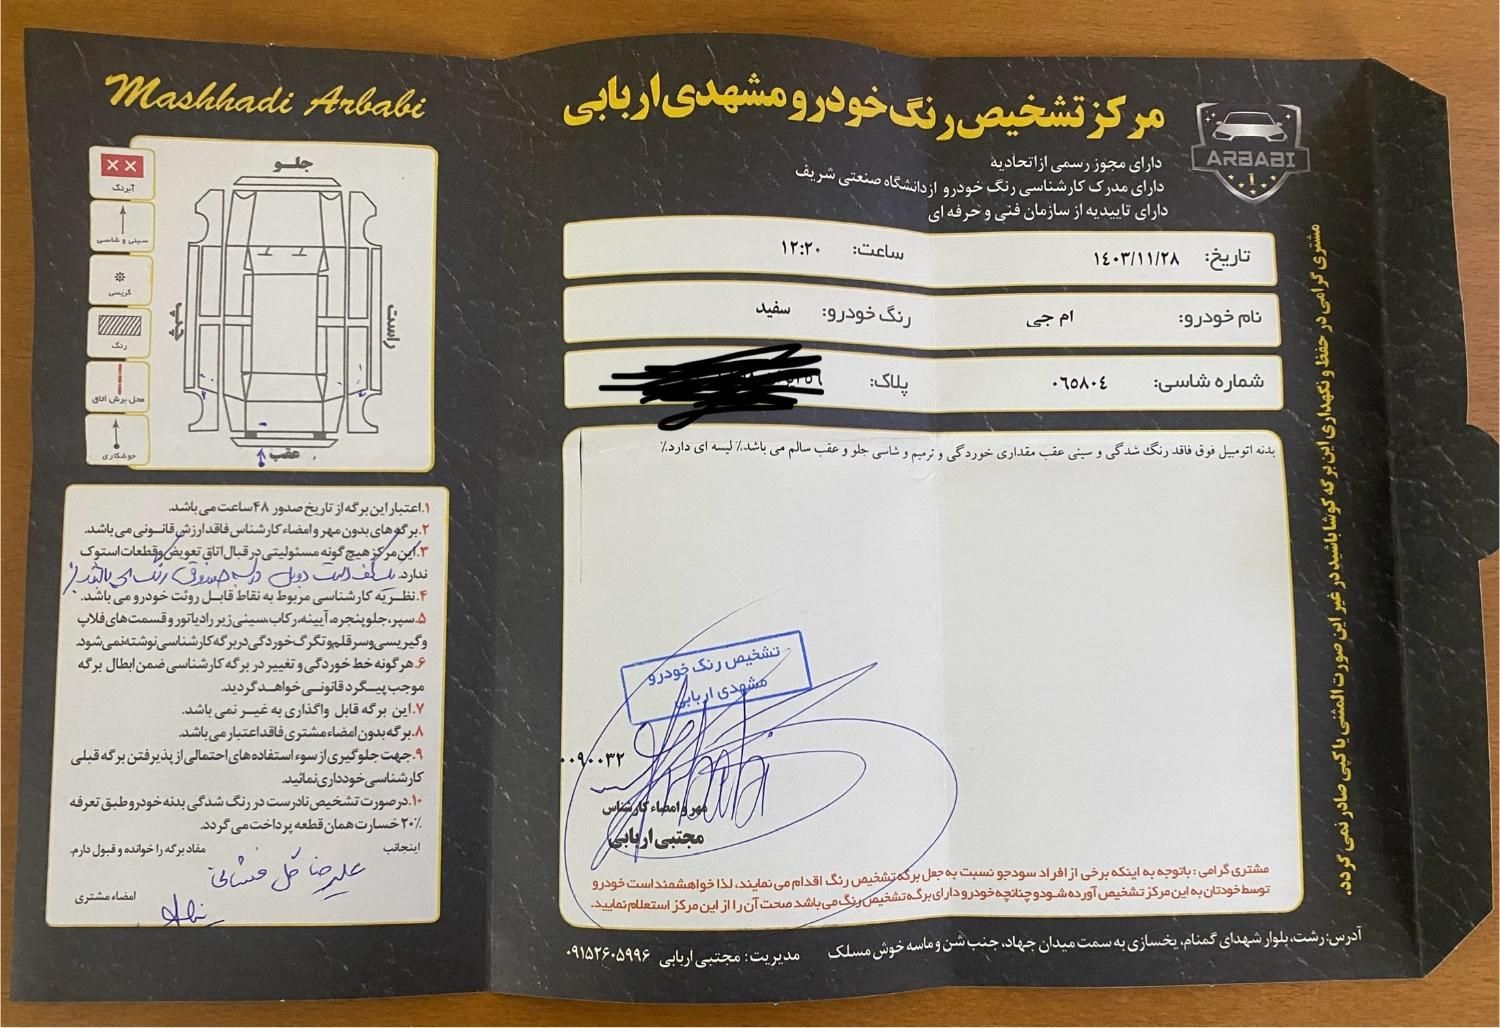 مرکز تشخیص رنگ خودرو مشهدی اربابی
ARBABI
1
دارای مجوز رسمی از اتحادیه
دارای مدرک کارشناسی رنگ خودرو از دانشگاه صنعتی شریف
دارای تاییدیه از سازمان فنی و حرفه ای
تاریخ: ۱۴۰۳/۱۱/۲۸ ساعت: ۱۲:۲۰
نام خودرو: ام جی رنگ خودرو: سفید
شماره شاسی: ۰۶۵۸۰۴ پلاک:
بدنه اتومبیل فوق فاقد رنگ شدگی و سینی عقب مقداری خوردگی و ترمیم و شاسی جلو و عقب سالم می باشد.٪ لیسه ای دارد.٪
تشخیص رنگ خودرو
مشهدی اربابی
۰۰۹۰۰۳۲
مهر و امضاء کارشناس
مجتبی اربابی
مشتری گرامی : باتوجه به اینکه برخی از افراد سودجو نسبت به جعل برگه تشخیص رنگ اقدام می نمایند، لذا خواهشمند است خودرو
توسط خودتان به این مرکز تشخیص آورده شود و چنانچه خودرو دارای برگه تشخیص رنگ می باشد صحت آن را از این مرکز استعلام نمایید.
آدرس: رشت، بلوار شهدای گمنام، یخسازی به سمت میدان جهاد، جنب شن و ماسه خوش مسلک مدیریت: مجتبی اربابی ۰۹۱۵۲۶۰۵۹۹۶
مشتری گرامی در حفظ و نگهداری این برگه کوشا باشید در غیر این صورت المثنی یا کپی صادر نمی گردد.
Mashhadi Arbabi
جلـو
راست
چپ
عقب
آبرنگ
سینی و شاسی
گریسی
رنگ
محل برش اتاق
جوشکاری
۱.اعتبار این برگه از تاریخ صدور ۴۸ ساعت می باشد.
۲.برگه های بدون مهر و امضاء کارشناس فاقد ارزش قانونی می باشد.
۳.این مرکز هیچ گونه مسئولیتی در قبال اتاق تعویض و قطعات استوک
ندارد.
۴.نظریه کارشناسی مربوط به نقاط قابل روئت خودرو می باشد.
۵.سپر، جلوپنجره، آیینه، رکاب، سینی زیر رادیاتور و قسمت های فلاپ
و گیریسی و سرقلم و تگرگ خوردگی در برگه کارشناسی نوشته نمی شود.
۶.هرگونه خط خوردگی و تغییر در برگه کارشناسی ضمن ابطال برگه
موجب پیگرد قانونی خواهد گردید.
۷.این برگه قابل واگذاری به غیر نمی باشد.
۸.برگه بدون امضاء مشتری فاقد اعتبار می باشد.
۹.جهت جلوگیری از سوء استفاده های احتمالی از پذیرفتن برگه قبلی
کارشناسی خودداری نمائید.
۱۰.در صورت تشخیص نادرست در رنگ شدگی بدنه خودرو طبق تعرفه
۲۰٪ خسارت همان قطعه پرداخت می گردد.
اینجانب مفاد برگه را خوانده و قبول دارم.
علیرضا گل فشانی
امضاء مشتری